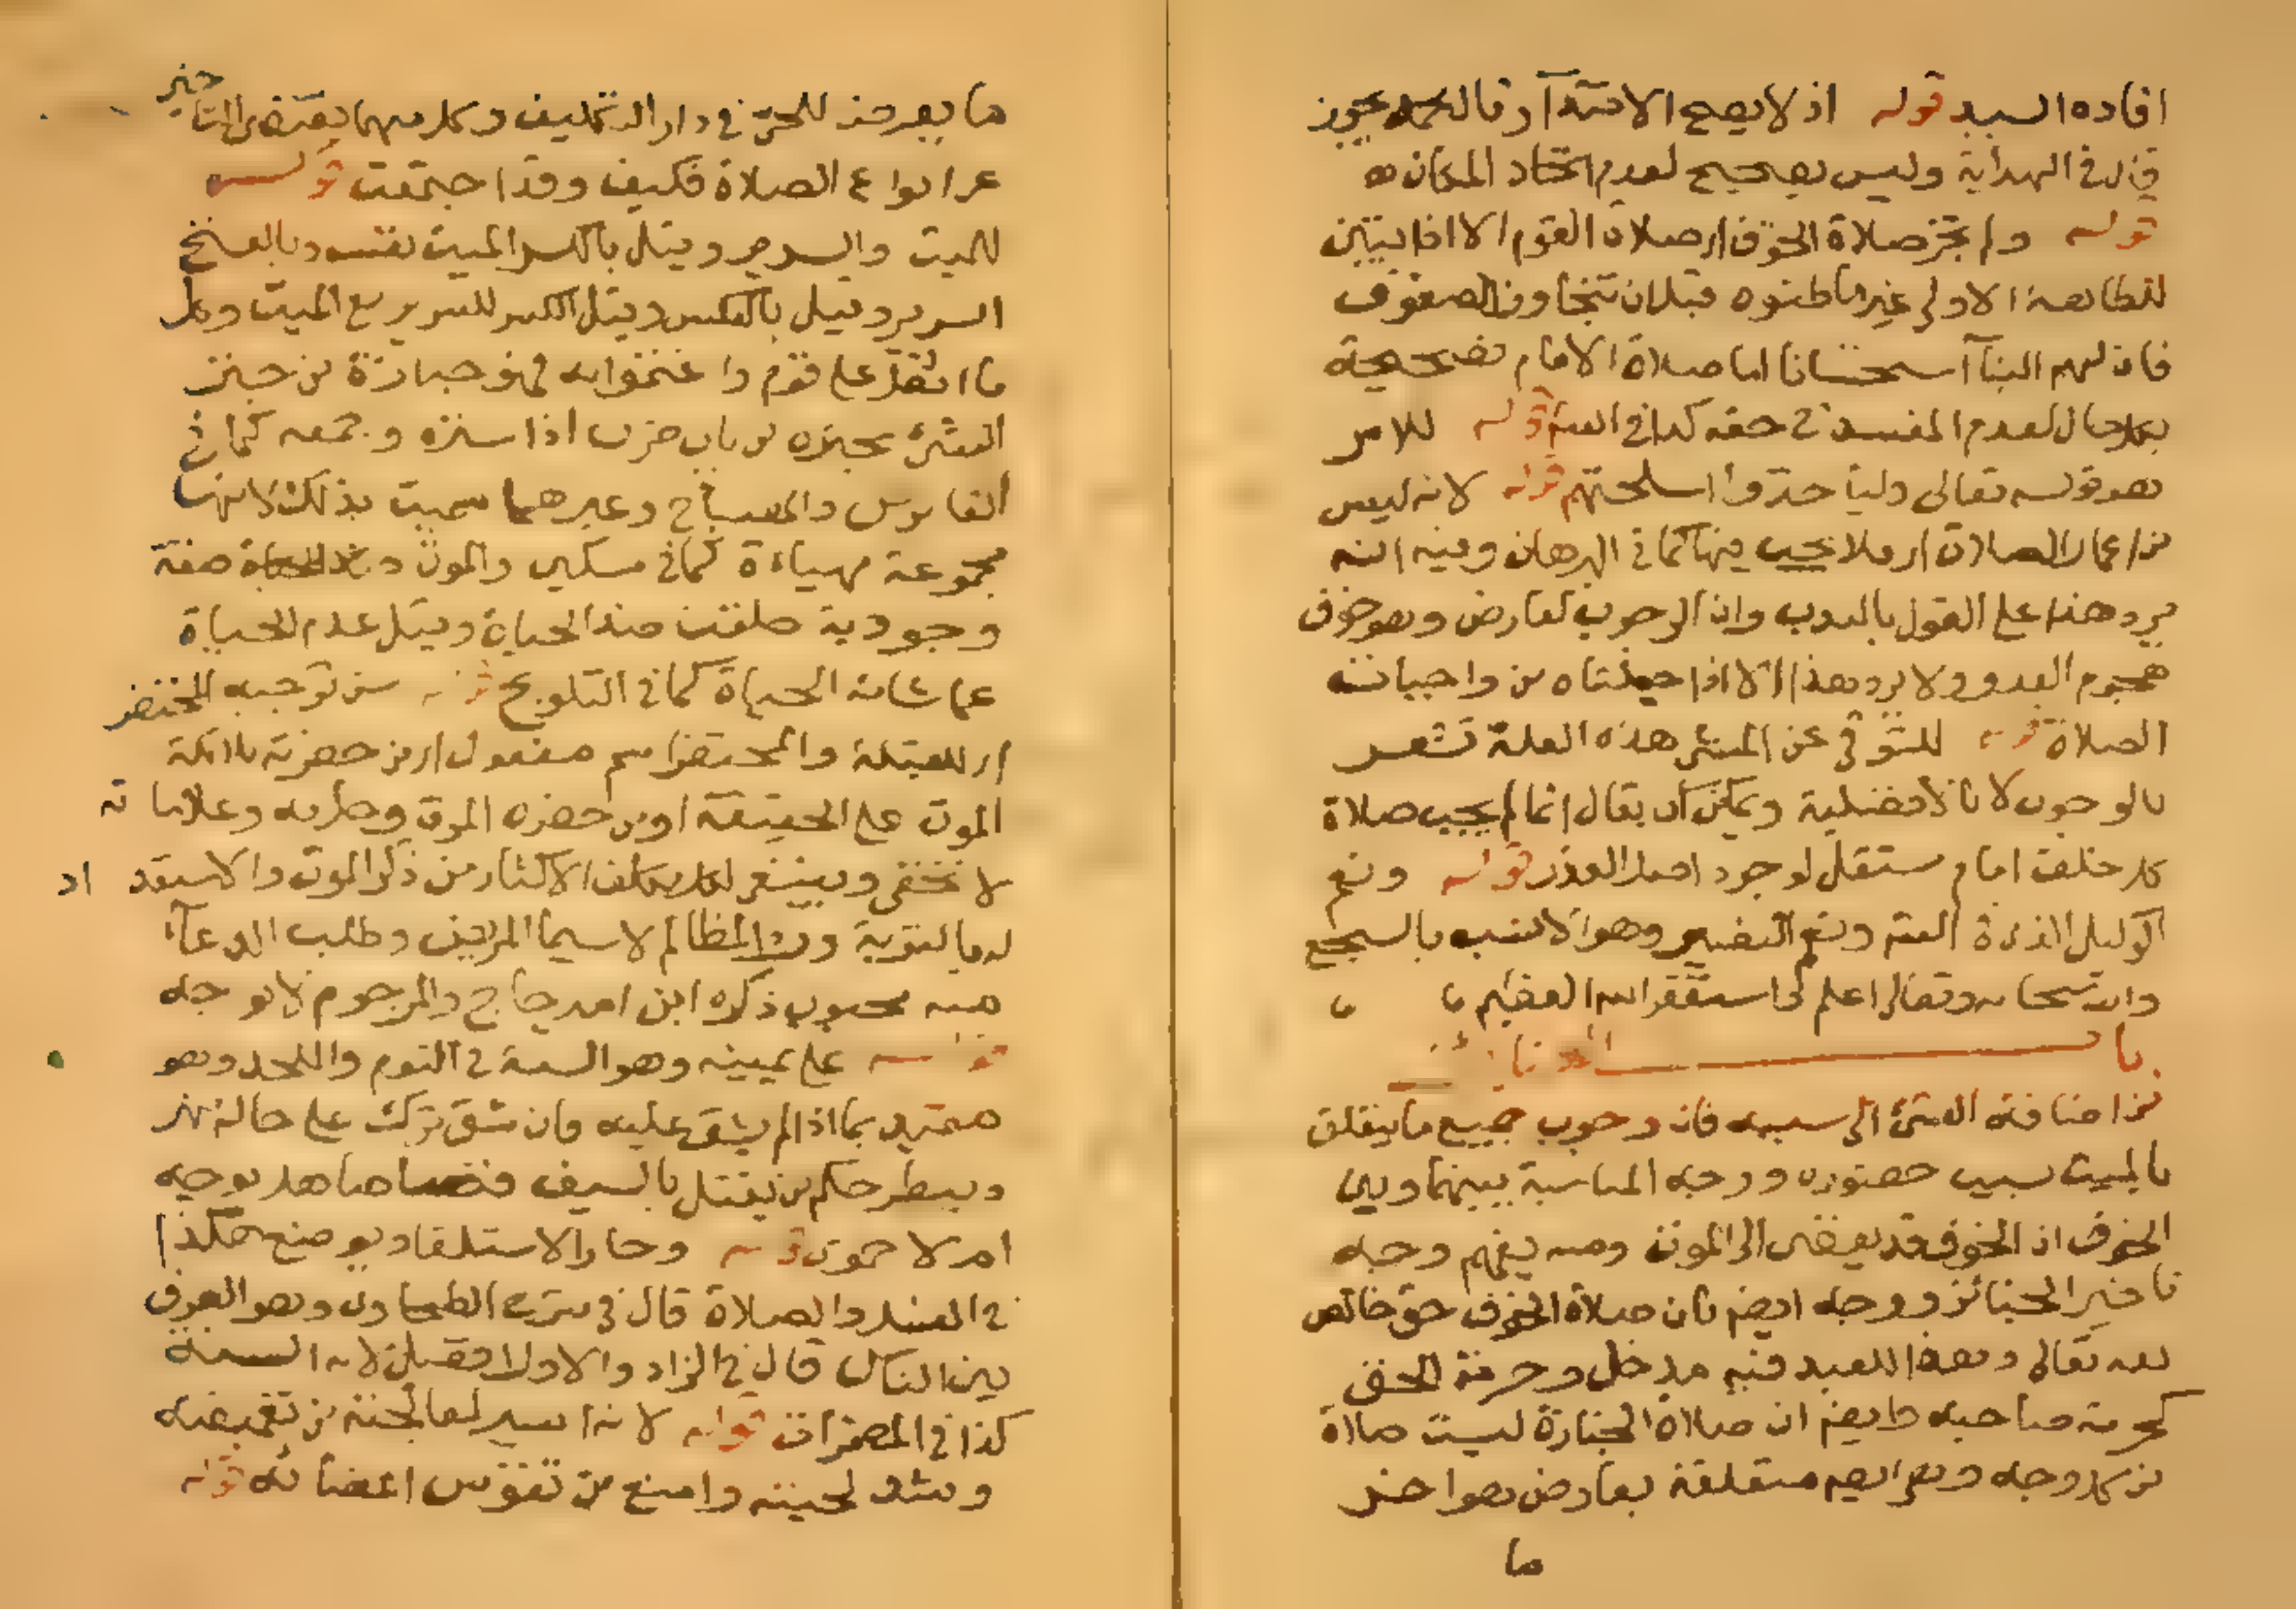 افاده السيد قوله اذ لا يصح الاقتدآ وقال محمد يجوز
قال في الهداية وليس بصحيح لعدم اتحاد المكان اه
قوله ولم تجز صلاة الخوف ار صلاة القوم الا اذا تبين
للطايفة الاولى غير ما ظنوه قبل ان تتجاوز الصفوف
فان لهم البنآ استحسانا اما صلاة الامام فصحيحة
بكل حال لعدم المفسد في حقه كذا في قوله للامر
هو قوله تعالى وليأخذوا اسلحتهم قوله لانه ليس
من اعمال الصلاة ار فلا يجب فيها كما في البرهان وفيه انه
يرد هذا على القول بالندب وان الوجوب لعارض وهو خوف
هجوم العدو ولا يرد هذا الا اذا جعلناه من واجبات
الصلاة قوله للتوقي عن المشي هذه العلة تشعر
بالوجوب لا بالافضلية ويمكن ان يقال انما لم يجب صلاة
كل خلف امام مستقل لوجود اصل العذر قوله ونعم
الوكيل ونعم النصير وهو الانسب بالسجع
والله سبحانه وتعالى اعلم واستغفر الله العظيم
باب الجنائز
من اضافة الشئ الى سببه فان وجوب جميع ما يتعلق
بالميت سببب حضوره ووجه المناسبة بينهما وبين
الخوف ان الخوف قد يفضى الى الموت ومنه يفهم وجه
تاخير الجنائز ووجه ايضم بان صلاة الخوف حق خالص
لله تعالى وهذا للعبد فيه مدخل وحرمة الحق
كحرمة صاحبه وايضم ان صلاة الجنازة ليست صلاة
من كل وجه وهي ايضم متعلقة بعارض هو اخر
ما
ما يعرض للحى في دار التكليف وكل منهما يقتضى التاخير
عن انواع الصلاة فكيف وقد اجتمعت قوله
للميت والسرير وقيل بالكسر الميت نفسه وبالفتح
السرير وقيل بالعكس وقيل الكسر للسرير مع الميت وكل
ما اثقل على قوم واغتموا به فهو جنازة من جنز
الشئ يجنزه من باب ضرب اذا ستره وجمعه كما في
القاموس والمصباح وغيرهما سميت بذلك لانها
مجموعة مهياءة كما في مسكين والموت صفة
وجودية خلقت ضد الحياة وقيل عدم الحياة
عما شانه الحياة كما في التلويح قوله سن توجيه المحتضر
ار للقبلة والمحتضر اسم مفعول ار من حضرته ملائكة
الموت على الحقيقة او من حضره الموت وحل به وعلاماته
لا تخفى وينبغى لكل مكلف الاكثار من ذكر الموت والاستعداد
له بالتوبة ورد المظالم لا سيما المريض وطلب الدعآء
منه محبوب ذكره ابن امير حاج والمرجوم لا يوجه
قوله على يمينه وهو السنة في النوم واللحد وهو
مقيد بما اذا لم يشق عليه فان شق ترك على حاله نهر
وينظر حكم من يقتل بالسيف قصاصا هل يوجه
ام لا حموى قوله وجاز الاستلقا ويوضع هكذا
في الغسل والصلاة قال في شرح الطحاوى وهو العرف
بين الناس قال في الزاد والاول افضل لانه السنة
كذا في المضمرات قوله لانه ايسر لمعالجته من تغميضه
وشد لحييه وامنع من تقوس اعضائه قوله